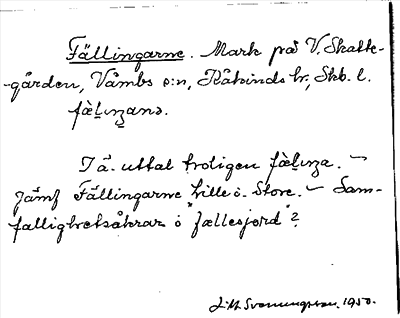 Fällingarne. Mark på V. Skatte-
-gården, Våmbs s:n, Kåkinds hr, Skb. l.
fälıŋana.
I ä. uttal troligen fälıŋa. –
Jämf Fällingarne Lille o. Store. – Sam-
fällighetsåkrar o "fællesjord"?
J. M. Svenningsson. 1950.